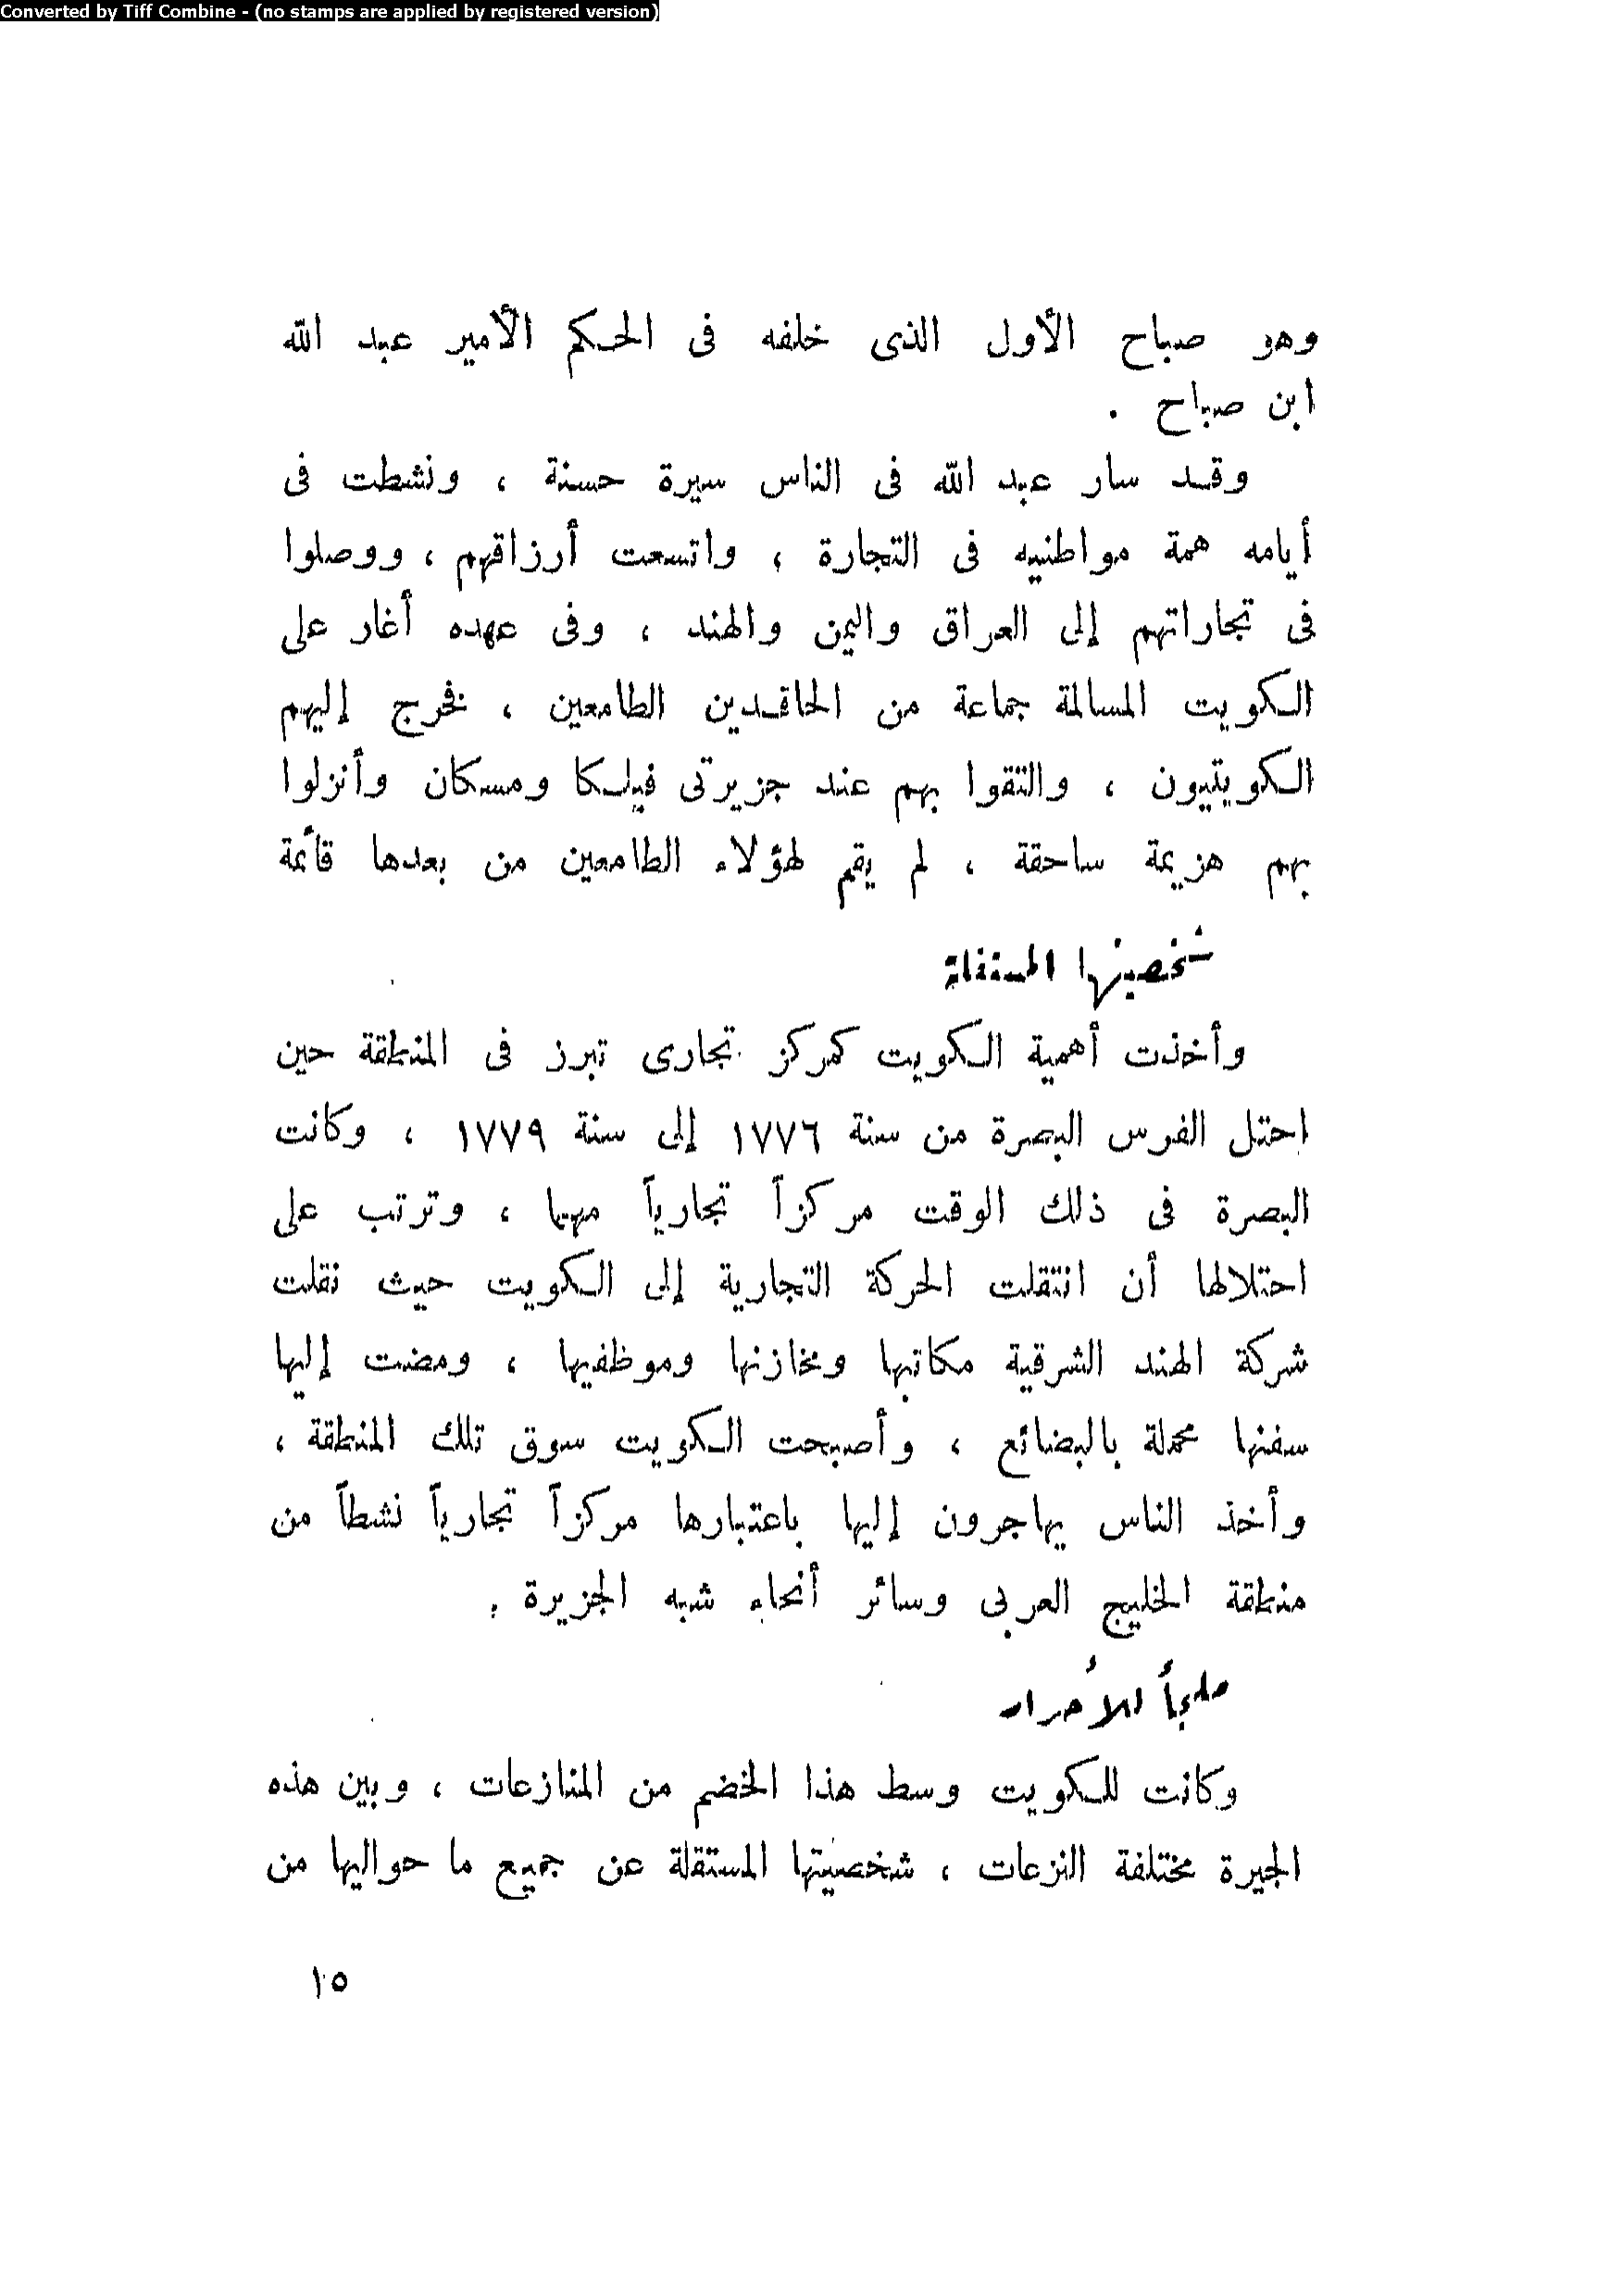 Converted by Tiff Combine - (no stamps are applied by registered version)
وهو صباح الأول الذى خلفه فى الحكم الأمير عبد الله
ابن صباح .
وقد سار عبد الله فى الناس سيرة حسنة ، ونشطت فى
أيامه همة مواطنيه فى التجارة ، واتسعت أرزاقهم ، ووصلوا
فى تجاراتهم إلى العراق واليمن والهند ، وفى عهده أغار على
الكويت المسالمة جماعة من الحاقدين الطامعين ، فخرج إليهم
الكويتيون ، والتقوا بهم عند جزيرتى فيلكا ومسكان وأنزلوا
بهم هزيمة ساحقة ، لم يقم لهؤلاء الطامعين من بعدها قائمة
شخصيتها المستقلة
وأخذت أهمية الكويت كمركز تجارى تبرز فى المنطقة حين
احتل الفرس البصرة من سنة ١٧٧٦ إلى سنة ١٧٧٩ ، وكانت
البصرة فى ذلك الوقت مركزاً تجارياً مهما ، وترتب على
احتلالها أن انتقلت الحركة التجارية إلى الكويت حيث نقلت
شركة الهند الشرقية مكاتبها ومخازنها وموظفيها ، ومضت إليها
سفنها محملة بالبضائع ، وأصبحت الكويت سوق تلك المنطقة ،
وأخذ الناس يهاجرون إليها باعتبارها مركزاً تجارياً نشطاً من
منطقة الخليج العربى وسائر أنحاء شبه الجزيرة .
ملجأ للأحرار
وكانت للكويت وسط هذا الخضم من المنازعات ، وبين هذه
الجيرة مختلفة النزعات ، شخصيتها المستقلة عن جميع ما حواليها من
١٥